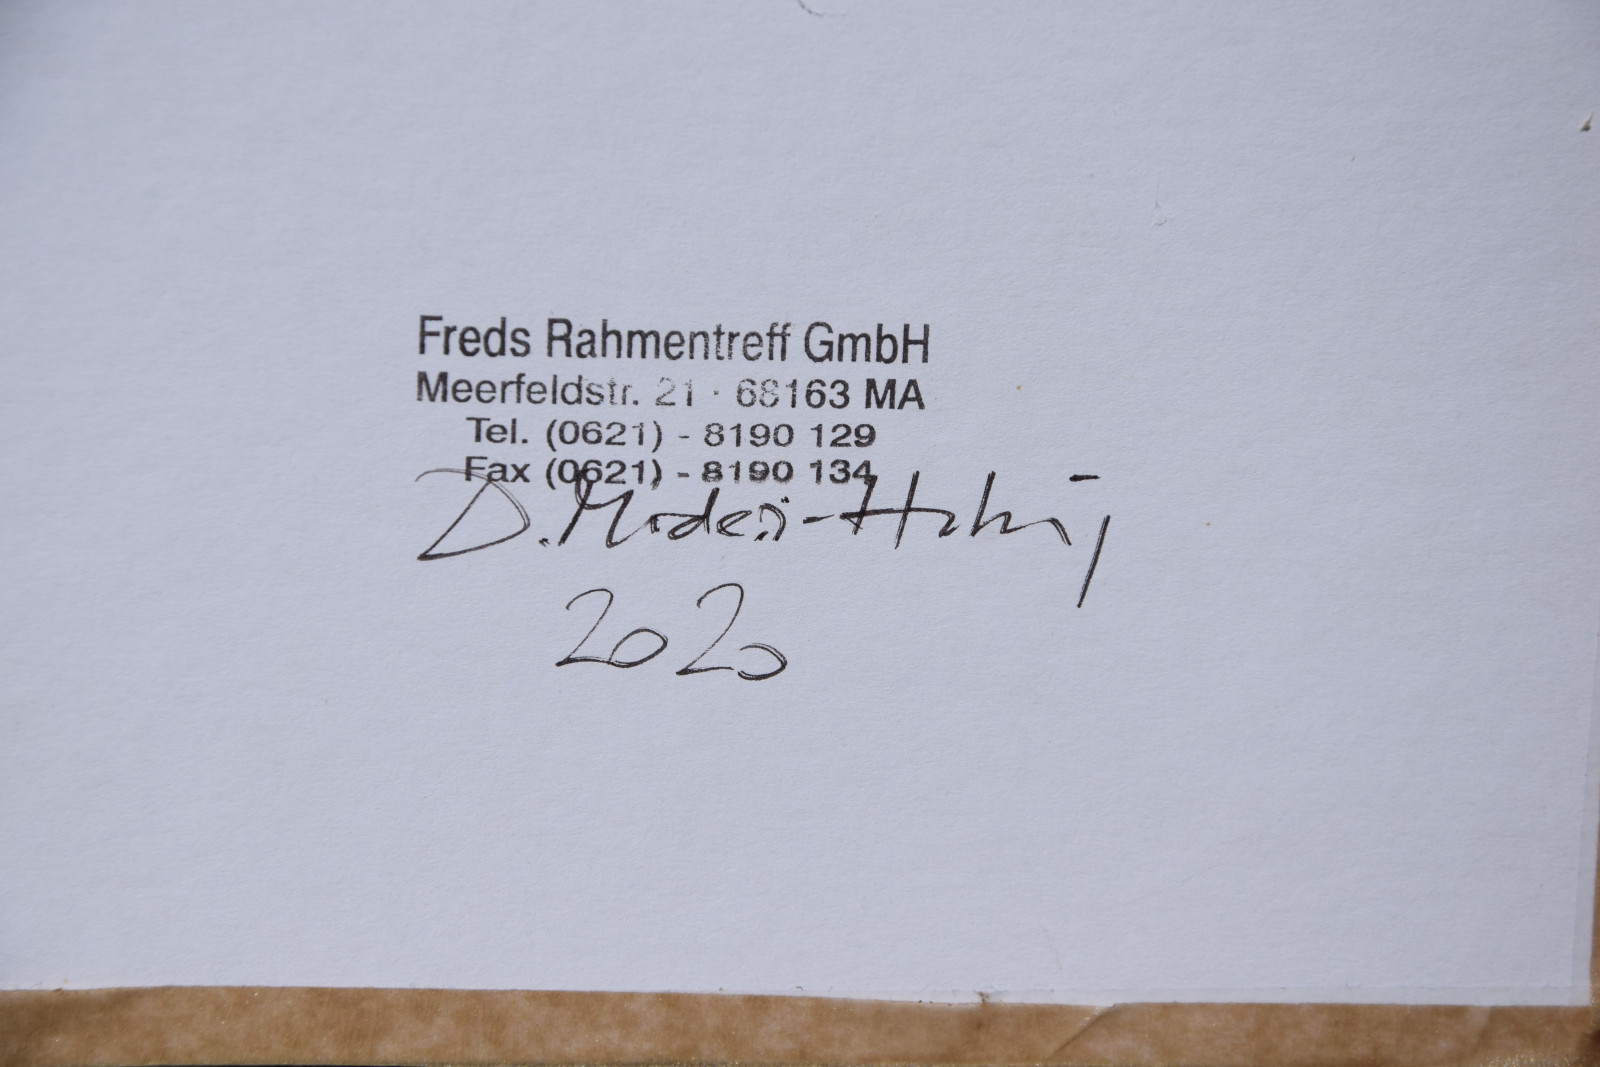 Freds Rahmentreff GmbH
Meerfeldstr. 21 · 68163 MA
Tel. (0621) - 8190 129
Fax (0621) - 8190 134
D.
2020